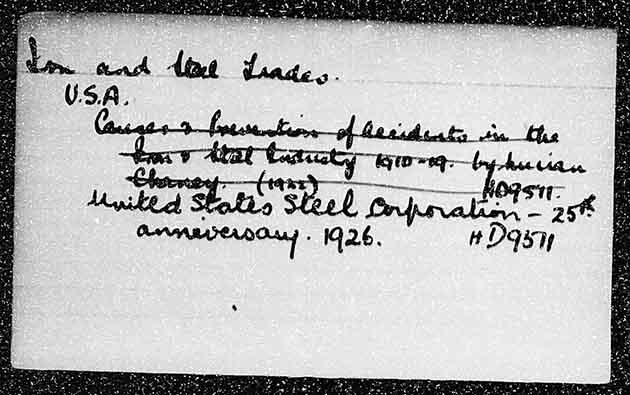 Iron and Steel Trades.
U.S.A.
Causes & Prevention of Accidents in the
Iron & Steel Industry 1910-19. by Lucian
Chaney. (1922) HD9511.
United States Steel Corporation - 25th
anniversary. 1926. HD9511